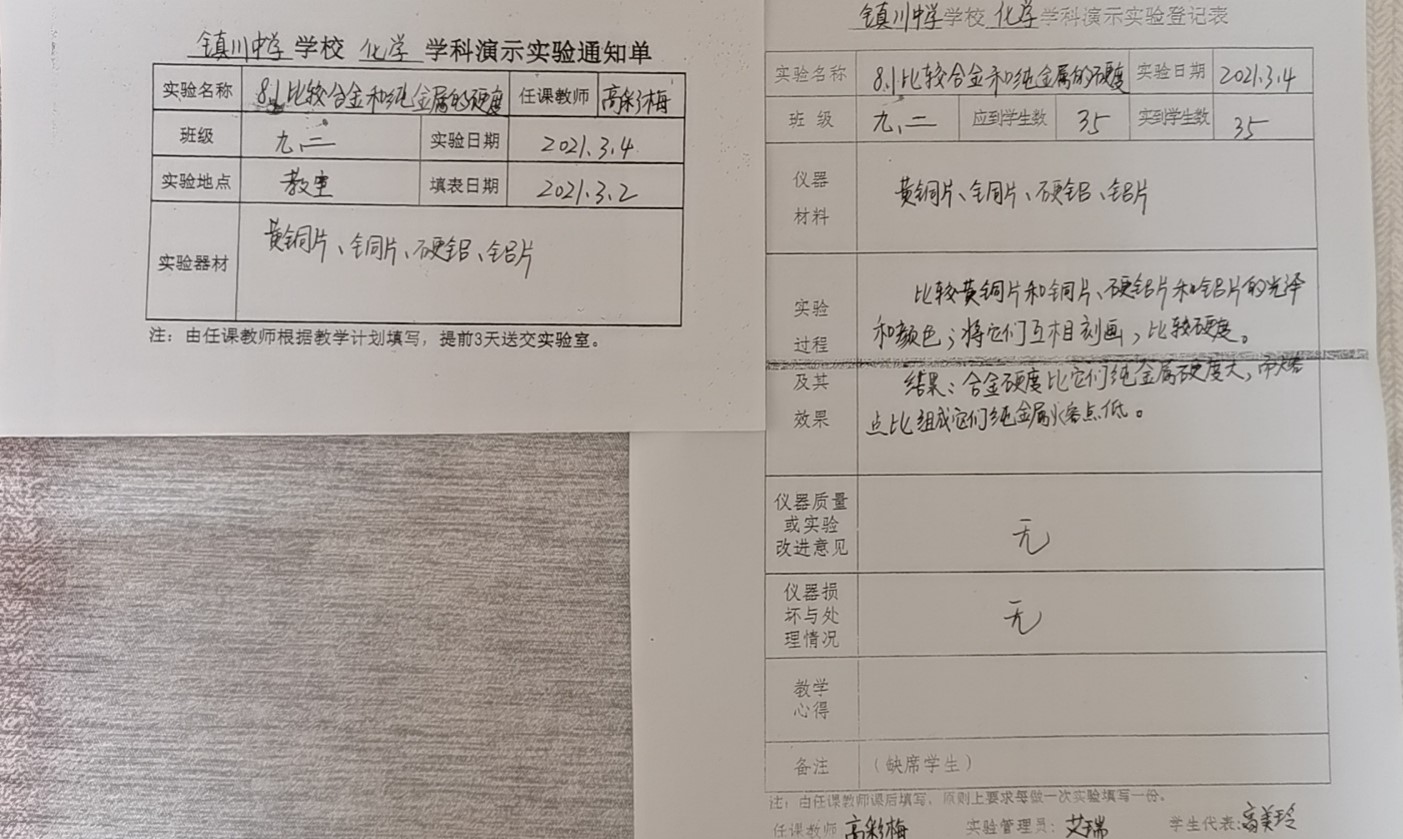 镇川中学 学校 化学 学科演示实验通知单
实验名称 8.1比较合金和纯金属的硬度 任课教师 高彩梅
班级 九、二 实验日期 2021.3.4
实验地点 教室 填表日期 2021.3.2
实验器材 黄铜片、铜片、硬铝、铝片
注：由任课教师根据教学计划填写，提前3天送交实验室。
镇川中学 学校 化学 学科演示实验登记表
实验名称 8.1比较合金和纯金属的硬度 实验日期 2021.3.4
班 级 九、二 应到学生数 35 实到学生数 35
仪器
材料
黄铜片、铜片、硬铝、铝片
实验
过程
及其
效果
比较黄铜片和铜片、硬铝片和铝片的光泽
和颜色；将它们互相刻画，比较硬度。
结果：合金硬度比它们纯金属硬度大，而熔
点比组成它们纯金属熔点低。
仪器质量
或实验
改进意见
无
仪器损
坏与处
理情况
无
教学
心得
备注 （缺席学生）
注：由任课教师课后填写，原则上要求每做一次实验填写一份。
任课教师 高彩梅 实验管理员：艾瑞 学生代表：高美玲